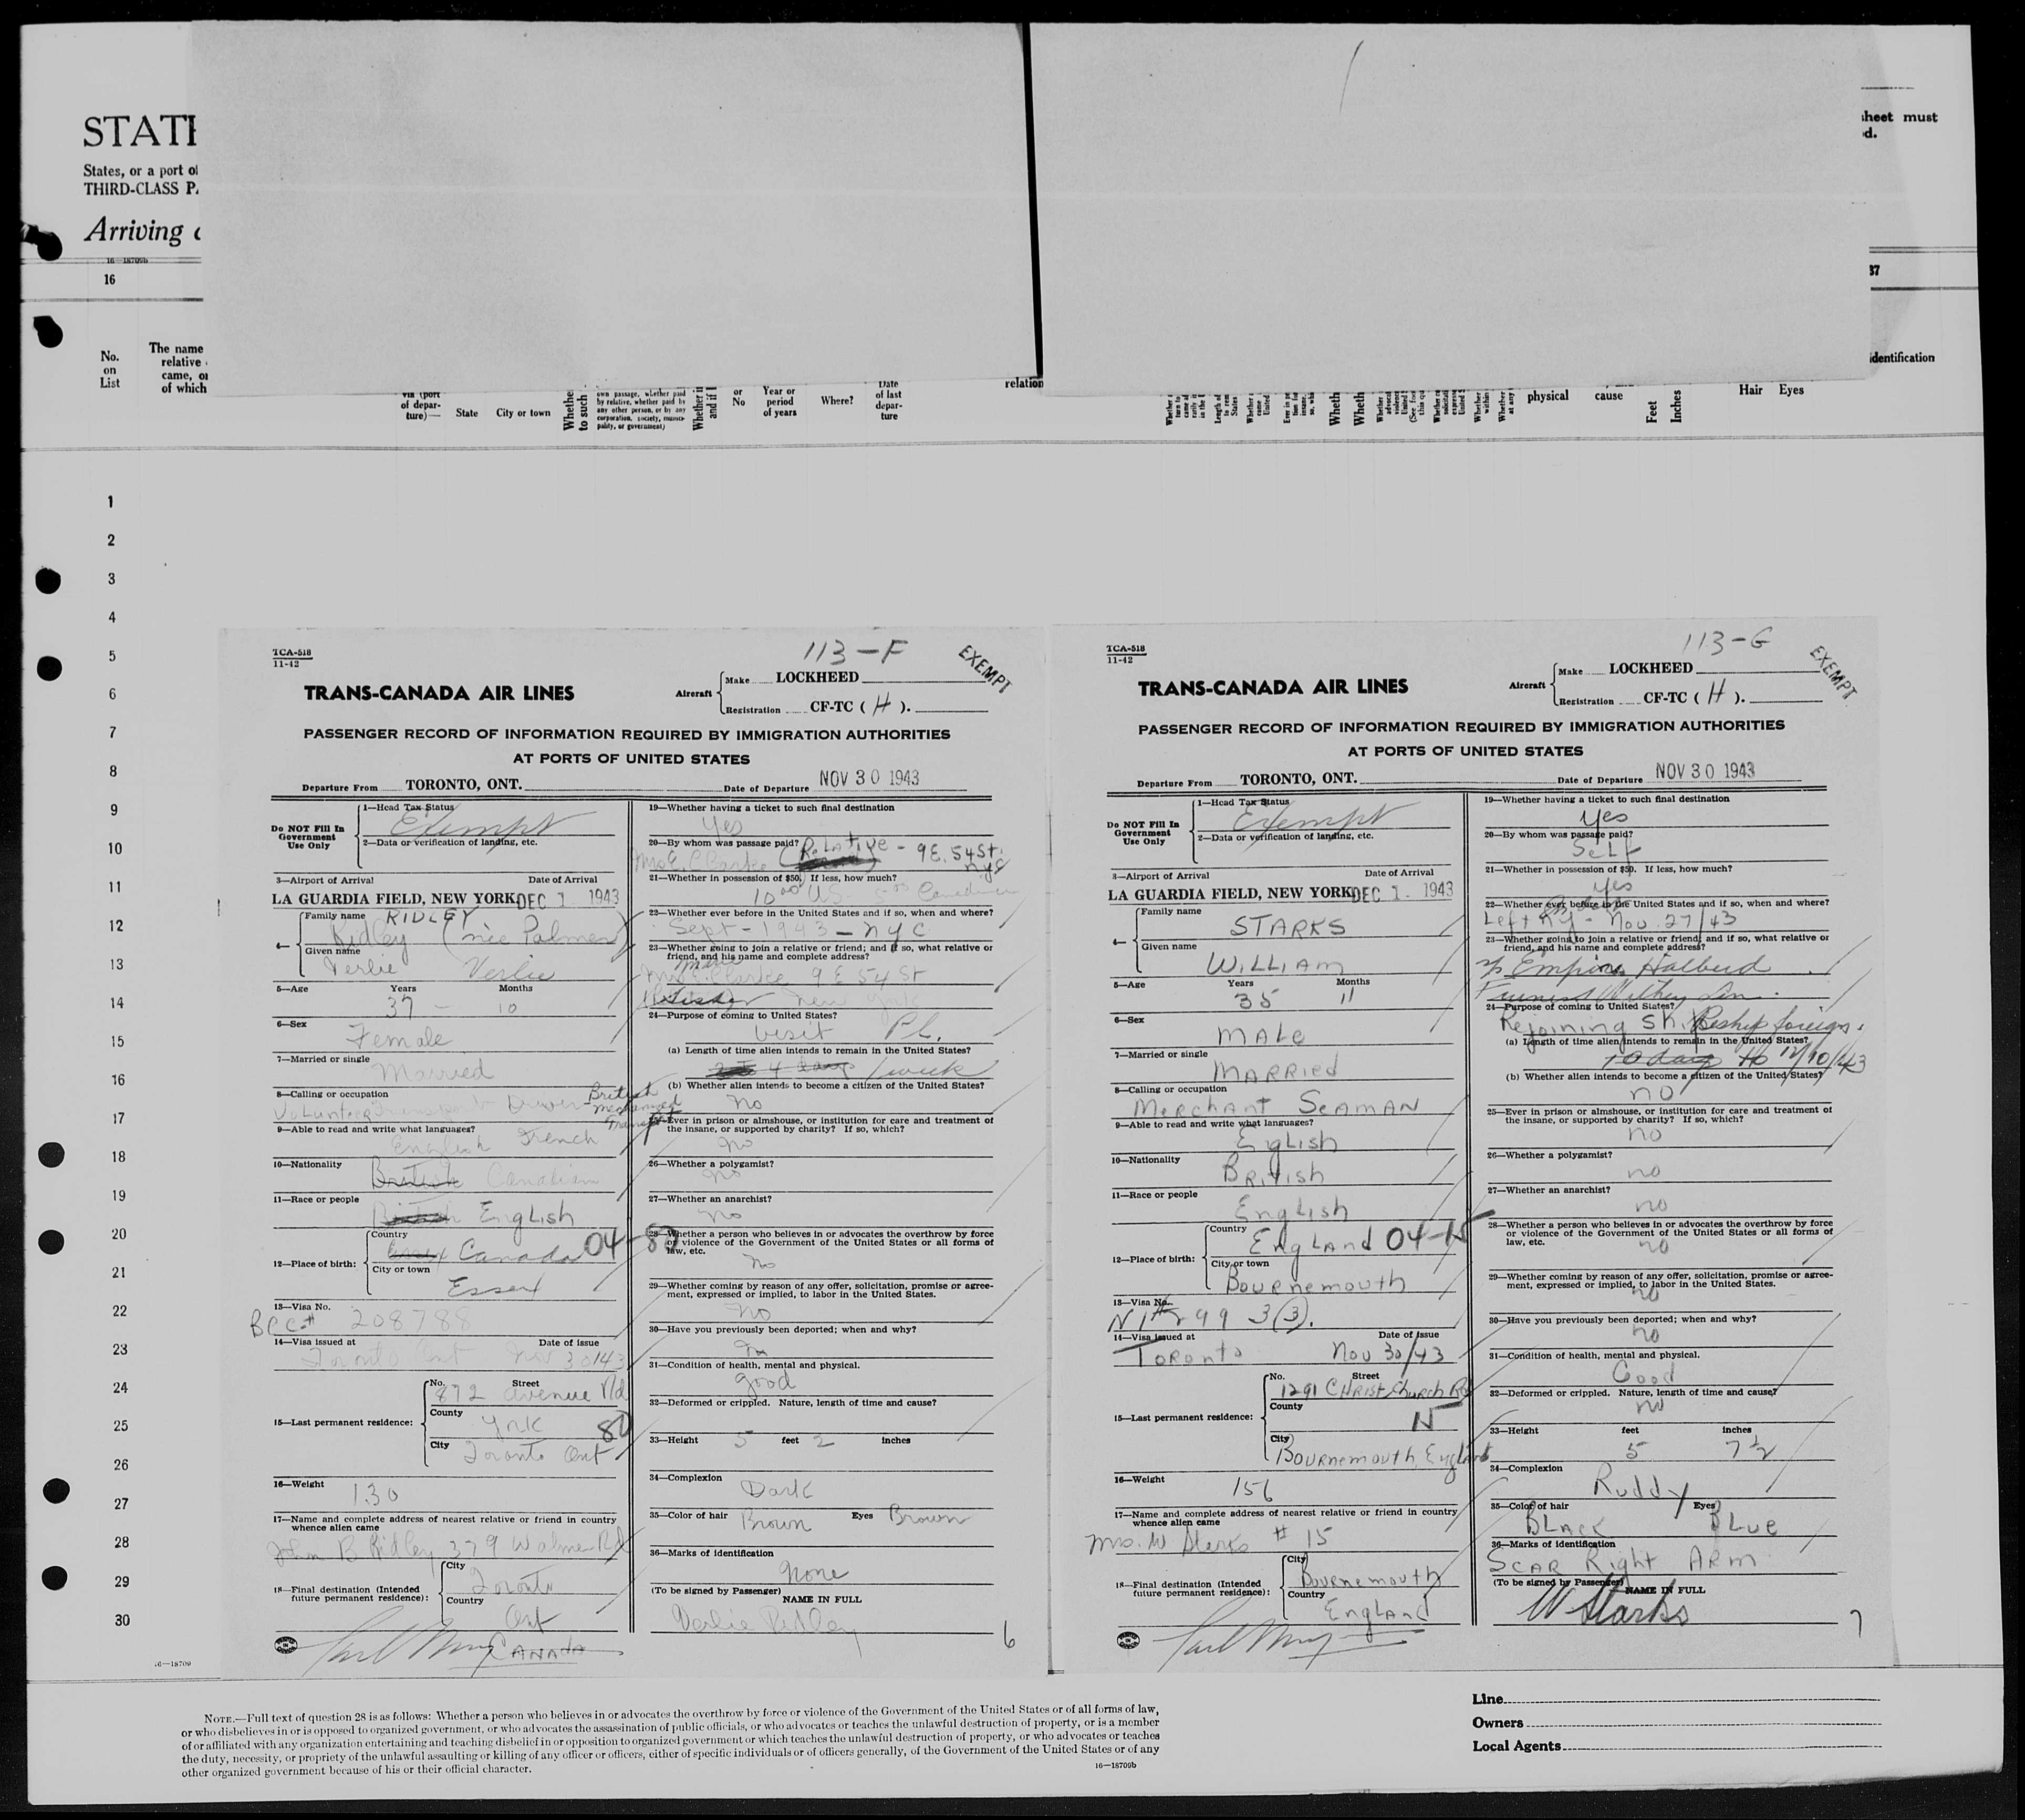 STATE
States, or a port of
THIRD-CLASS PA
Arriving a
16—18709b
16
sheet must
d.
37
No. on List
The name
relative
came, or
of which
via (port
of depar-
ture)—
State
City or town
Whethe
to such
own passage, whether paid
by relative, whether paid by
any other person, or by any
corporation, society, munici-
pality, or government)
Whether in
and if l
or
No
Year or
period
of years
Where?
Date
of last
depar-
ture
relation
physical
cause
Feet
Inches
identification
Hair Eyes
1
2
3
4
5
6
7
8
9
10
11
12
13
14
15
16
17
18
19
20
21
22
23
24
25
26
27
28
29
30
16—18709
TCA-518
11-42
113-F
EXEMPT
TRANS-CANADA AIR LINES
Aircraft
Make LOCKHEED
Registration CF-TC ( H ).
PASSENGER RECORD OF INFORMATION REQUIRED BY IMMIGRATION AUTHORITIES
AT PORTS OF UNITED STATES
Departure From TORONTO, ONT. Date of Departure NOV 30 1943
Do NOT Fill In Government Use Only
1—Head Tax Status
Exempt
2—Data or verification of landing, etc.
3—Airport of Arrival Date of Arrival
LA GUARDIA FIELD, NEW YORK DEC 1 1943
4—
Family name RIDLEY
Ridley (née Palmer)
Given name
Verlie Verlie
5—Age Years Months
37 - 10
6—Sex
Female
7—Married or single
Married
8—Calling or occupation
Volunteer Transport Driver - British Mechanized Transport
9—Able to read and write what languages?
English French
10—Nationality
British Canadian
11—Race or people
British English
12—Place of birth:
Country
Essex Canada 04-87
City or town
Essex
13—Visa No.
BCC# 208788
14—Visa issued at Date of issue
Toronto Ont Nov 30/43
15—Last permanent residence:
No. Street
872 Avenue Rd
County
York
City
Toronto Ont
16—Weight
130
17—Name and complete address of nearest relative or friend in country
whence alien came
John B Ridley 379 Walmer Rd
18—Final destination (Intended
future permanent residence):
City
Toronto
Country
Ont
CANADA
19—Whether having a ticket to such final destination
Yes
20—By whom was passage paid?
Mrs E. Clarke (Relative - 9 E. 54 St. NYC
21—Whether in possession of $50. If less, how much?
10.00 US 5.00 Canadian
22—Whether ever before in the United States and if so, when and where?
Sept - 1943 - NYC
23—Whether going to join a relative or friend; and if so, what relative or
friend, and his name and complete address?
Mrs E. Clarke 9 E 54 St
Sister New York
24—Purpose of coming to United States?
Visit P.L.
(a) Length of time alien intends to remain in the United States?
4 days 1 week
(b) Whether alien intends to become a citizen of the United States?
no
25—Ever in prison or almshouse, or institution for care and treatment of
the insane, or supported by charity? If so, which?
no
26—Whether a polygamist?
no
27—Whether an anarchist?
no
28—Whether a person who believes in or advocates the overthrow by force
or violence of the Government of the United States or all forms of
law, etc.
no
29—Whether coming by reason of any offer, solicitation, promise or agree-
ment, expressed or implied, to labor in the United States.
no
30—Have you previously been deported; when and why?
no
31—Condition of health, mental and physical.
good
32—Deformed or crippled. Nature, length of time and cause?
33—Height 5 feet 2 inches
34—Complexion
Dark
35—Color of hair Brown Eyes Brown
36—Marks of identification
None
(To be signed by Passenger) NAME IN FULL
Verlie Ridley
6
TCA-518
11-42
113-G
EXEMPT
TRANS-CANADA AIR LINES
Aircraft
Make LOCKHEED
Registration CF-TC ( H ).
PASSENGER RECORD OF INFORMATION REQUIRED BY IMMIGRATION AUTHORITIES
AT PORTS OF UNITED STATES
Departure From TORONTO, ONT. Date of Departure NOV 30 1943
Do NOT Fill In Government Use Only
1—Head Tax Status
Exempt
2—Data or verification of landing, etc.
3—Airport of Arrival Date of Arrival
LA GUARDIA FIELD, NEW YORK DEC 1 - 1943
4—
Family name
STARKS
Given name
WILLIAM
5—Age Years Months
35 11
6—Sex
MALE
7—Married or single
MARRIEd
8—Calling or occupation
MERCHANT SEAMAN
9—Able to read and write what languages?
EngLish
10—Nationality
BRitish
11—Race or people
English
12—Place of birth:
Country
EngLand 04-15
City or town
BOURNEMOUTH
13—Visa No.
99 3(3).
14—Visa issued at Date of Issue
TORONTO Nov 30/43
15—Last permanent residence:
No. Street
1291 CHRIST CHURCH Rd
County
15
City
BOURNEMOUTH, England
16—Weight
156
17—Name and complete address of nearest relative or friend in country
whence alien came
Mrs. W Starks # 15
18—Final destination (Intended
future permanent residence):
City
Bournemouth
Country
EngLANd
19—Whether having a ticket to such final destination
Yes
20—By whom was passage paid?
SeLf
21—Whether in possession of $50. If less, how much?
yes
22—Whether ever before in the United States and if so, when and where?
Left NY - Nov. 27/43
23—Whether going to join a relative or friend; and if so, what relative or
friend, and his name and complete address?
S/S Empire Halberd
Furness Withey Line.
24—Purpose of coming to United States?
Rejoining Ship Reship foreign.
(a) Length of time alien intends to remain in the United States?
10 days to 12/10/43
(b) Whether alien intends to become a citizen of the United States?
no
25—Ever in prison or almshouse, or institution for care and treatment of
the insane, or supported by charity? If so, which?
no
26—Whether a polygamist?
no
27—Whether an anarchist?
no
28—Whether a person who believes in or advocates the overthrow by force
or violence of the Government of the United States or all forms of
law, etc.
no
29—Whether coming by reason of any offer, solicitation, promise or agree-
ment, expressed or implied, to labor in the United States.
no
30—Have you previously been deported; when and why?
no
31—Condition of health, mental and physical.
Good
32—Deformed or crippled. Nature, length of time and cause?
no
33—Height feet inches
5 7½
34—Complexion
Ruddy
35—Color of hair Eyes
BLACK BLUE
36—Marks of identification
SCAR Right ARM
(To be signed by Passenger) NAME IN FULL
W Starks
7
NOTE.—Full text of question 28 is as follows: Whether a person who believes in or advocates the overthrow by force or violence of the Government of the United States or of all forms of law,
or who disbelieves in or is opposed to organized government, or who advocates the assassination of public officials, or who advocates or teaches the unlawful destruction of property, or is a member
of or affiliated with any organization entertaining and teaching disbelief in or opposition to organized government or which teaches the unlawful destruction of property, or who advocates or teaches
the duty, necessity, or propriety of the unlawful assaulting or killing of any officer or officers, either of specific individuals or of officers generally, of the Government of the United States or of any
other organized government because of his or their official character.
16—18709b
Line
Owners
Local Agents